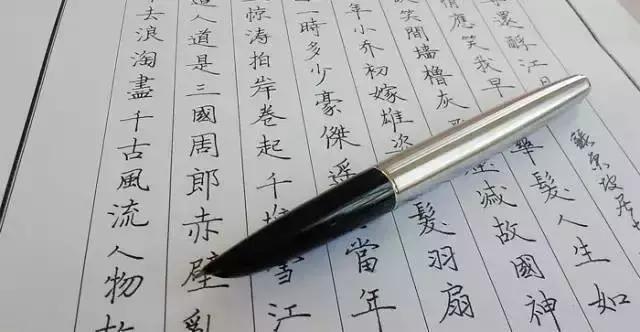 去浪淘盡千古風流人物故
人道是三國周郎赤壁亂
驚涛拍岸卷起千堆雪江
一時多少豪傑遥 當年
年小乔初嫁雄姿 髮羽扇
笑間墙櫓灰 滅故國神
情應笑我早 華髮人生如
還酹江月